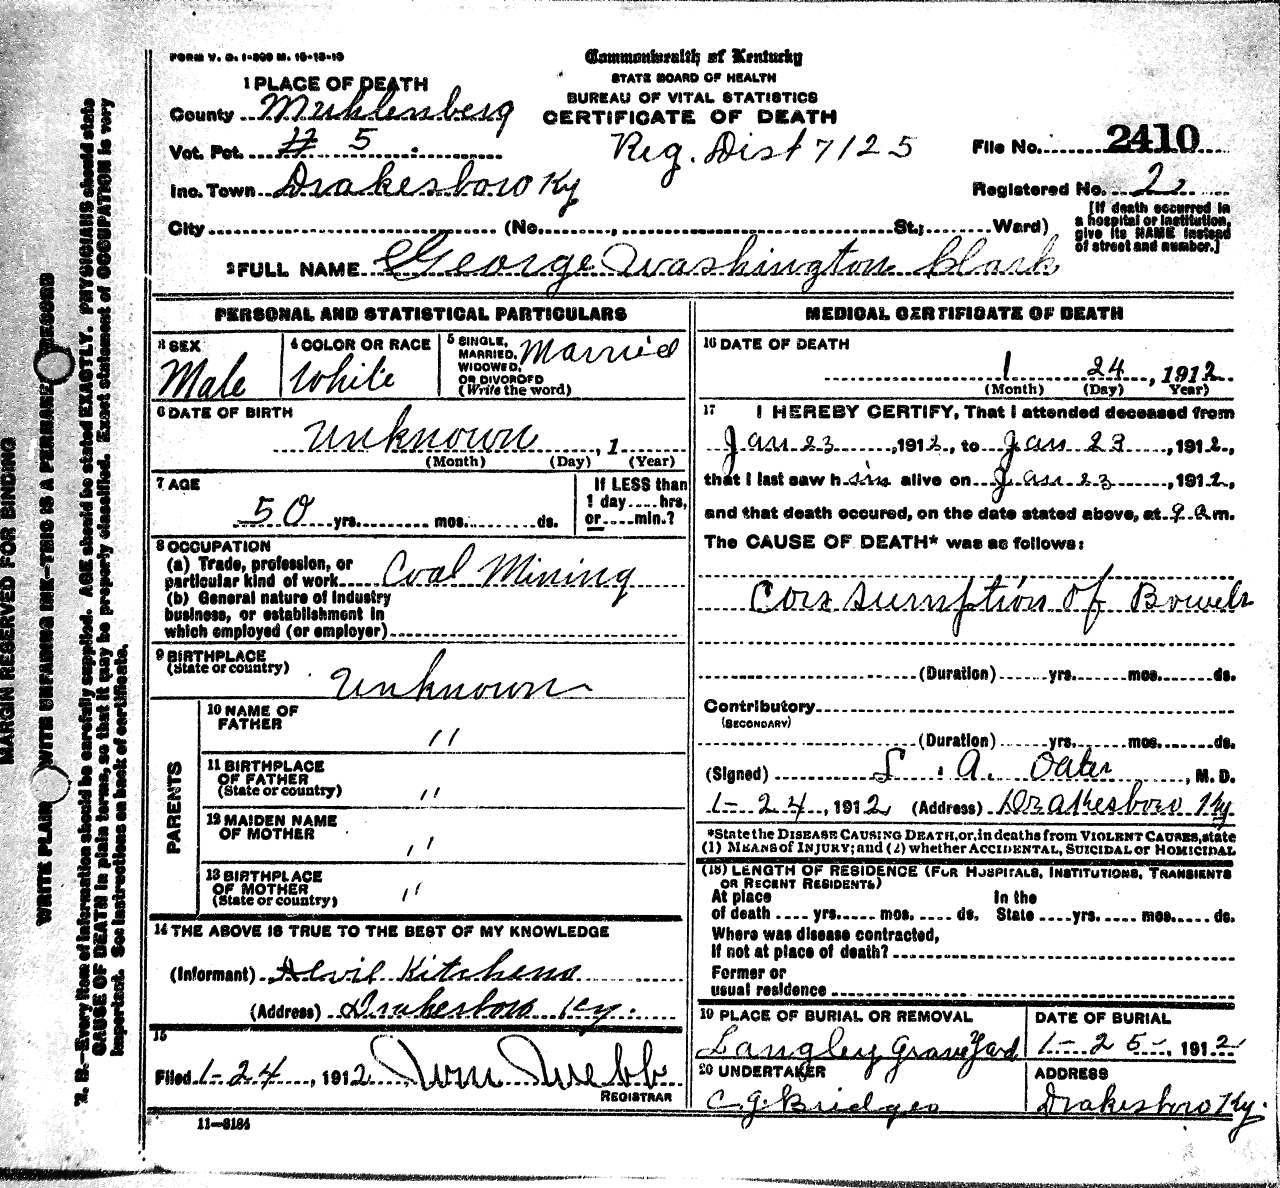 FORM V. S. 1-300 M. 10-13-10
Commonwealth of Kentucky
STATE BOARD OF HEALTH
BUREAU OF VITAL STATISTICS
CERTIFICATE OF DEATH
1 PLACE OF DEATH
County Muhlenberg
Vot. Pct. # 5
Reg. Dist 7125
File No. 2410
Inc. Town Drakesboro Ky
Registered No. 22
City (No. , St.; Ward)
[If death occurred in a hospital or institution, give its NAME instead of street and number.]
2 FULL NAME George Washington Clark
PERSONAL AND STATISTICAL PARTICULARS
3 SEX Male
4 COLOR OR RACE White
5 SINGLE, MARRIED, WIDOWED, OR DIVORCED (Write the word) Married
6 DATE OF BIRTH
Unknown , 1
(Month) (Day) (Year)
7 AGE
50 yrs. mos. ds.
If LESS than 1 day hrs, or min.?
8 OCCUPATION
(a) Trade, profession, or particular kind of work Coal Mining
(b) General nature of Industry business, or establishment in which employed (or employer)
9 BIRTHPLACE
(State or country) Unknown
PARENTS
10 NAME OF FATHER "
11 BIRTHPLACE OF FATHER (State or country) "
12 MAIDEN NAME OF MOTHER "
13 BIRTHPLACE OF MOTHER (State or country) "
14 THE ABOVE IS TRUE TO THE BEST OF MY KNOWLEDGE
(Informant) Kitchens
(Address) Drakesboro Ky.
15
Filed 1-24, 1912 Wm Webb
REGISTRAR
11-3184
MEDICAL CERTIFICATE OF DEATH
16 DATE OF DEATH
1 24, 1912
(Month) (Day) Year)
17 I HEREBY CERTIFY, That I attended deceased from
Jan 23, 1912, to Jan 23, 1912,
that I last saw him alive on Jan 23, 1912,
and that death occured, on the date stated above, at 9 a m.
The CAUSE OF DEATH* was as follows:
Consumption of Bowels
(Duration) yrs. mos. ds.
Contributory
(SECONDARY)
(Duration) yrs. mos. ds.
(Signed) A. Oates, M. D.
1-24, 1912 (Address) Drakesboro Ky
*State the DISEASE CAUSING DEATH, or, in deaths from VIOLENT CAUSES, state
(1) MEANS of INJURY; and (2) whether ACCIDENTAL, SUICIDAL or HOMICIDAL
(18) LENGTH OF RESIDENCE (FOR HOSPITALS, INSTITUTIONS, TRANSIENTS
OR RECENT RESIDENTS)
At place of death yrs. mos. ds. In the State yrs. mos. ds.
Where was disease contracted,
If not at place of death?
Former or
usual residence
19 PLACE OF BURIAL OR REMOVAL
Langley GraveYard
DATE OF BURIAL
1-25-, 1912
20 UNDERTAKER
C. J. Bridges
ADDRESS
Drakesboro Ky.
MARGIN RESERVED FOR BINDING
WRITE PLAIN WITH UNFADING INK—THIS IS A PERMANE RECORD
N. B.—Every item of information should be carefully supplied. AGE should be stated EXACTLY. PHYSICIANS should state
CAUSE OF DEATH in plain terms, so that it may be properly classified. Exact statement of OCCUPATION is very
important. See instructions on back of certificate.